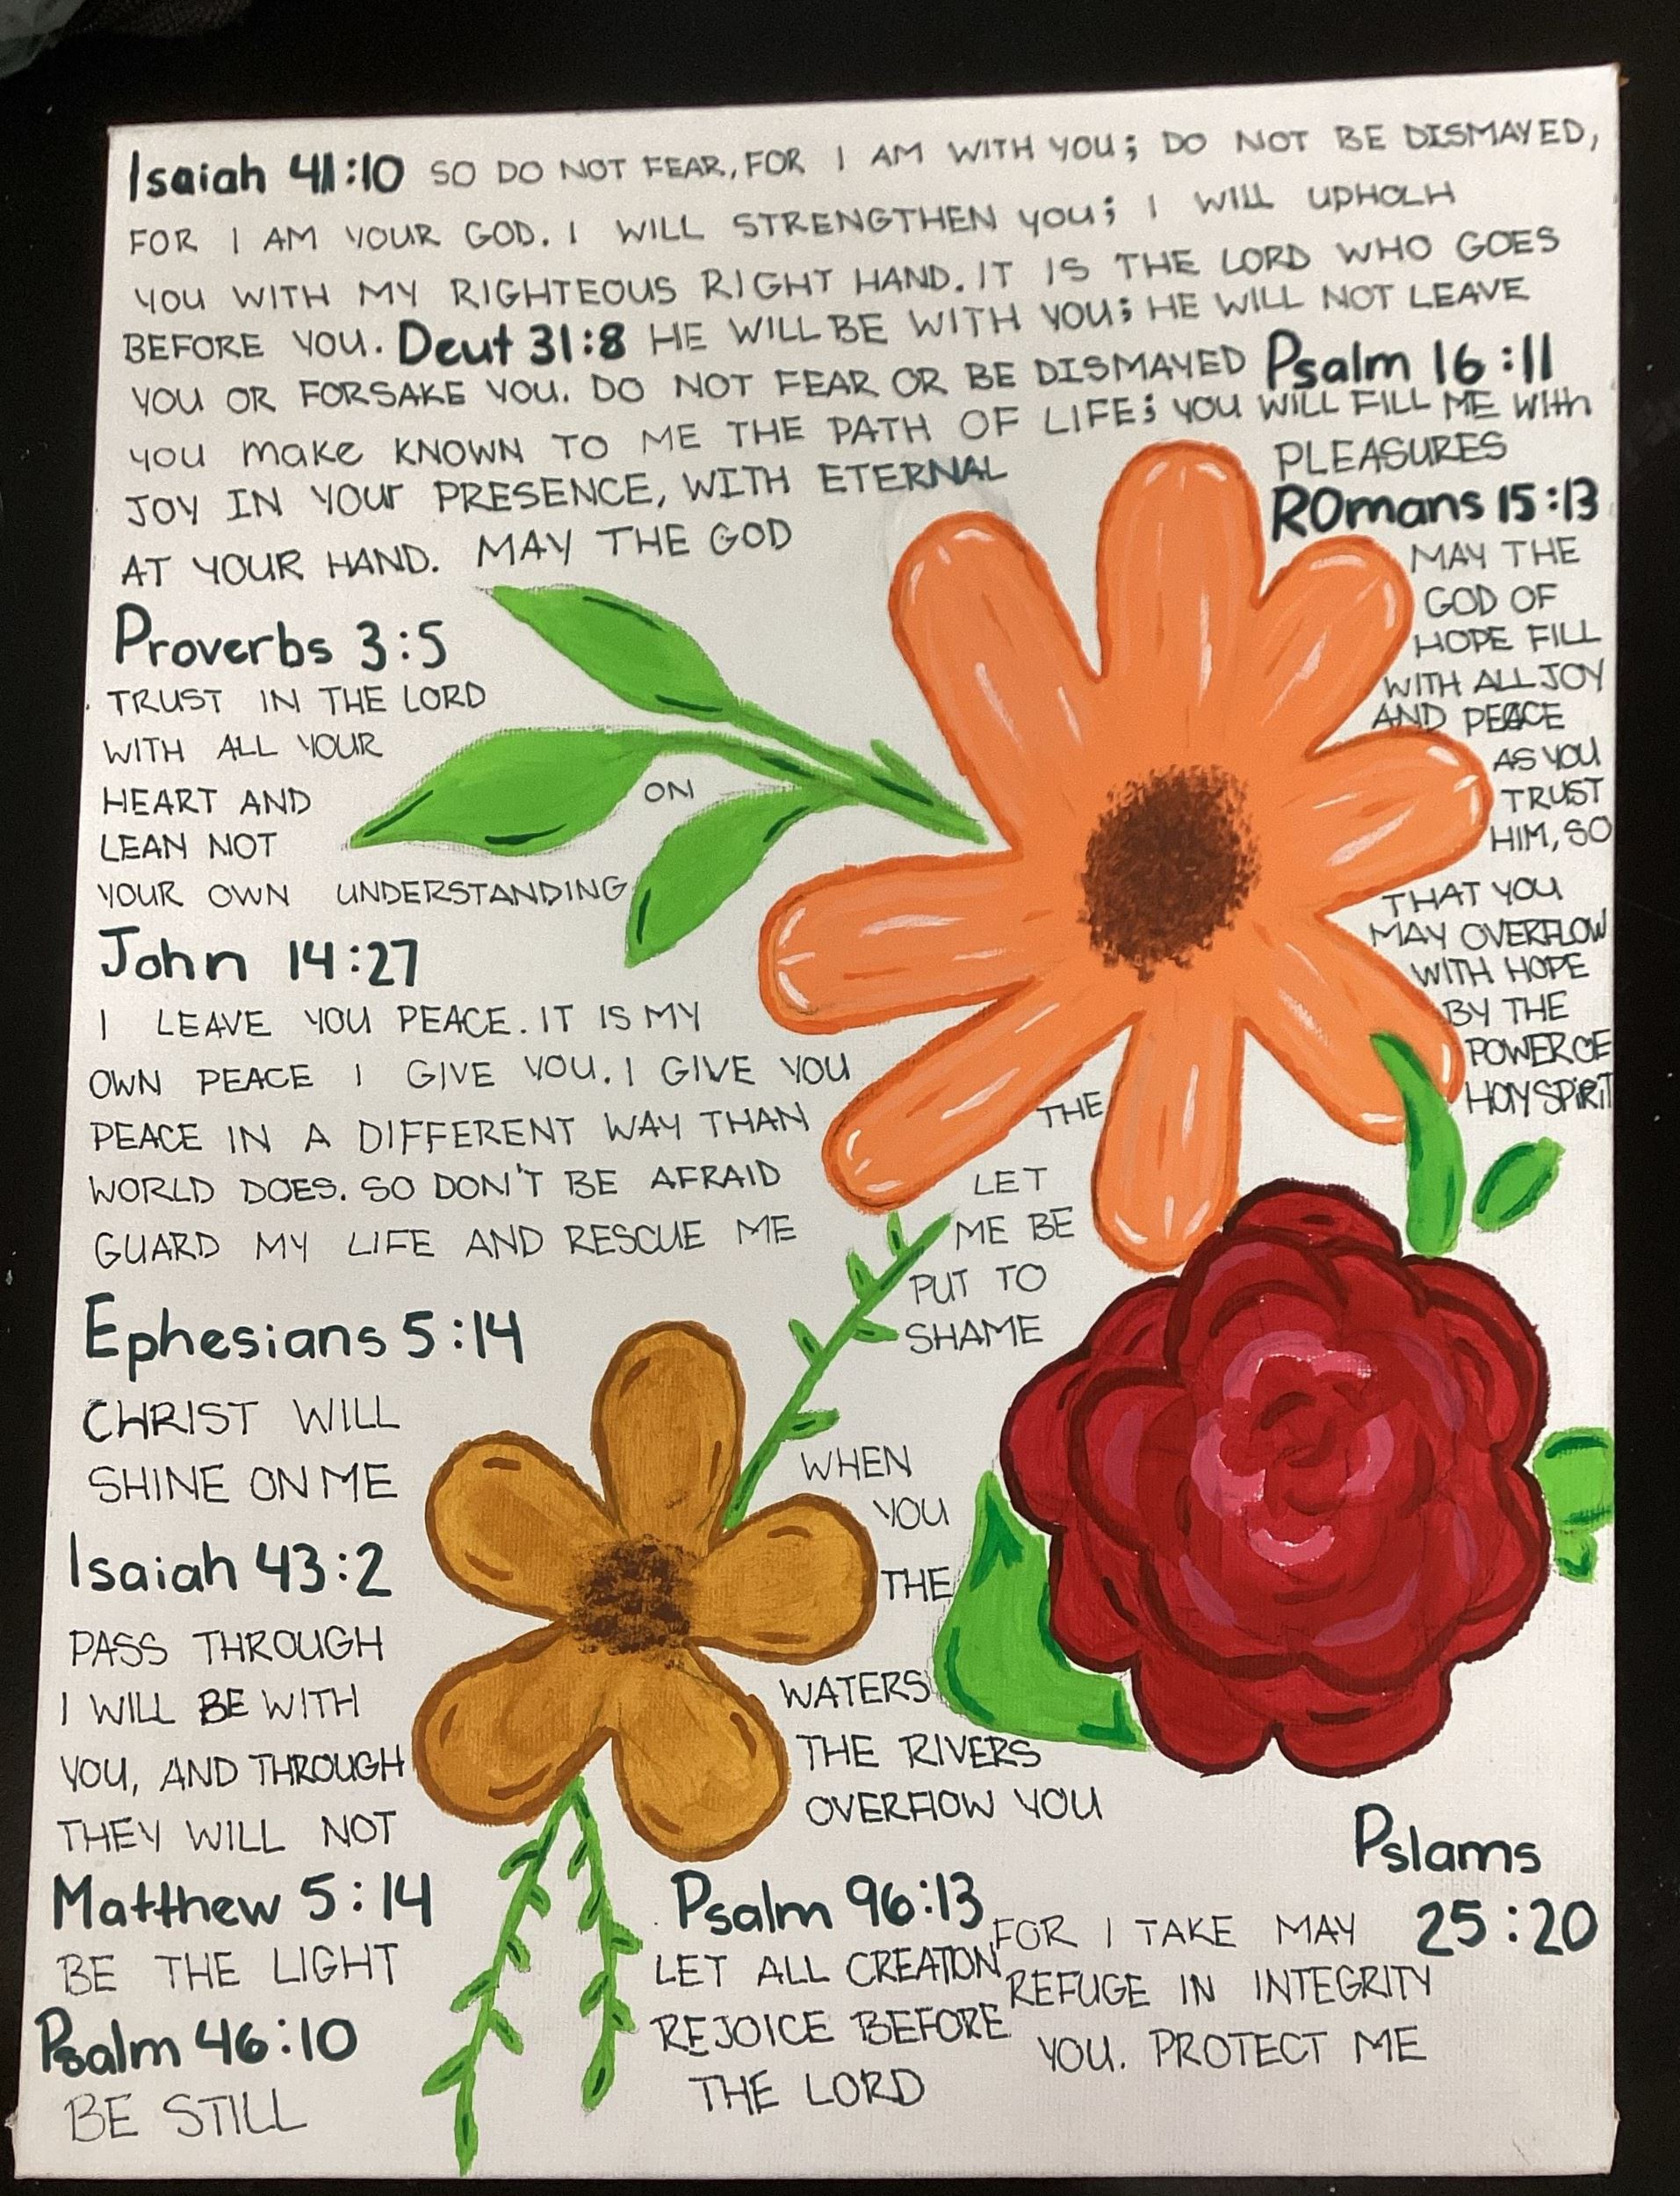 Isaiah 41:10 SO DO NOT FEAR, FOR I AM WITH YOU; DO NOT BE DISMAYED,
FOR I AM YOUR GOD. I WILL STRENGTHEN YOU; I WILL UPHOLH
YOU WITH MY RIGHTEOUS RIGHT HAND. IT IS THE LORD WHO GOES
BEFORE YOU. Deut 31:8 HE WILL BE WITH YOU; HE WILL NOT LEAVE
YOU OR FORSAKE YOU. DO NOT FEAR OR BE DISMAYED Psalm 16:11
YOU make KNOWN TO ME THE PATH OF LIFE; YOU WILL FILL ME With
JOY IN YOUr PRESENCE, WITH ETERNAL PLEASURES
AT YOUR HAND. MAY THE GOD
ROmans 15:13
MAY THE
GOD OF
HOPE FILL
WITH ALL JOY
AND PEACE
AS YOU
TRUST
HIM, SO
THAT YOU
MAY OVERFLOW
WITH HOPE
BY THE
POWER OF
HOlY SPiRiT
Proverbs 3:5
TRUST IN THE LORD
WITH ALL YOUR
HEART AND
LEAN NOT ON
YOUR OWN UNDERSTANDING
John 14:27
I LEAVE YOU PEACE. IT IS MY
OWN PEACE I GIVE YOU. I GIVE YOU
PEACE IN A DIFFERENT WAY THAN THE
WORLD DOES. SO DON'T BE AFRAID
GUARD MY LIFE AND RESCUE ME
LET
ME BE
PUT TO
SHAME
Ephesians 5:14
CHRIST WILL
SHINE ON ME
Isaiah 43:2
WHEN
YOU
THE
PASS THROUGH
WATERS
I WILL BE WITH
YOU, AND THROUGH
THE RIVERS
THEY WILL NOT
OVERFlOW YOU
Matthew 5:14
BE THE LIGHT
Psalm 46:10
BE STILL
Psalm 96:13
LET ALL CREATION
REJOICE BEFORE
THE LORD
Pslams
25:20
FOR I TAKE MAY
REFUGE IN INTEGRITY
YOU. PROTECT ME